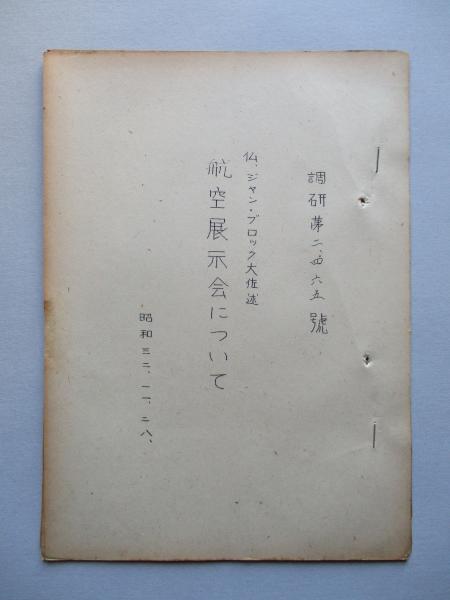 調研第二、四六五號
仏、ジャン・ブロック大佐述
航空展示会について
昭和三二、一一、二八、